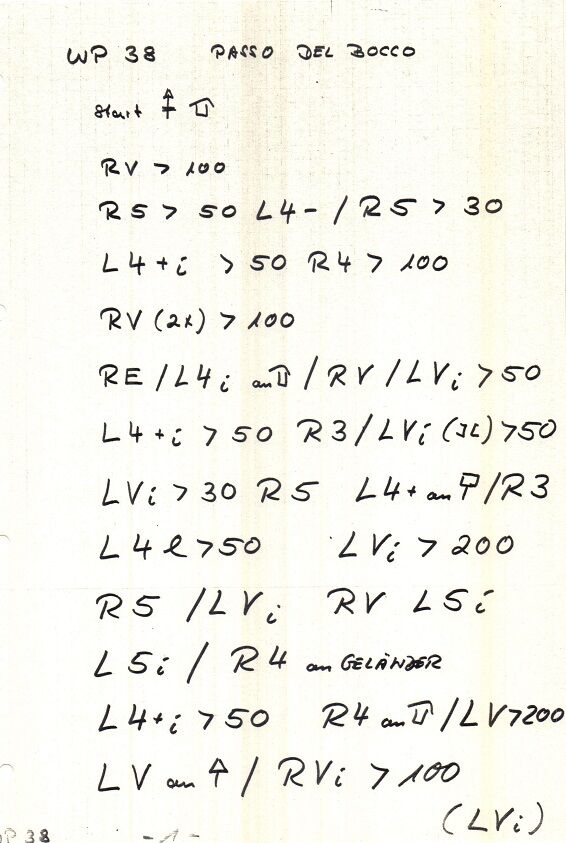 WP 38 PASSO DEL BOCCO
Start
RV > 100
R5 > 50 L4- / R5 > 30
L4+i > 50 R4 > 100
RV (2x) > 100
RE / L4i an / RV / LVi > 50
L4+i > 50 R3 / LVi (][) > 50
LVi > 30 R5 L4+ an / R3
L4 l > 50 LVi > 200
R5 / LVi RV L5i
L5i / R4 an GELÄNDER
L4+i > 50 R4 an / LV > 200
LV an / RVi > 100
(LVi)
WP 38 -1-